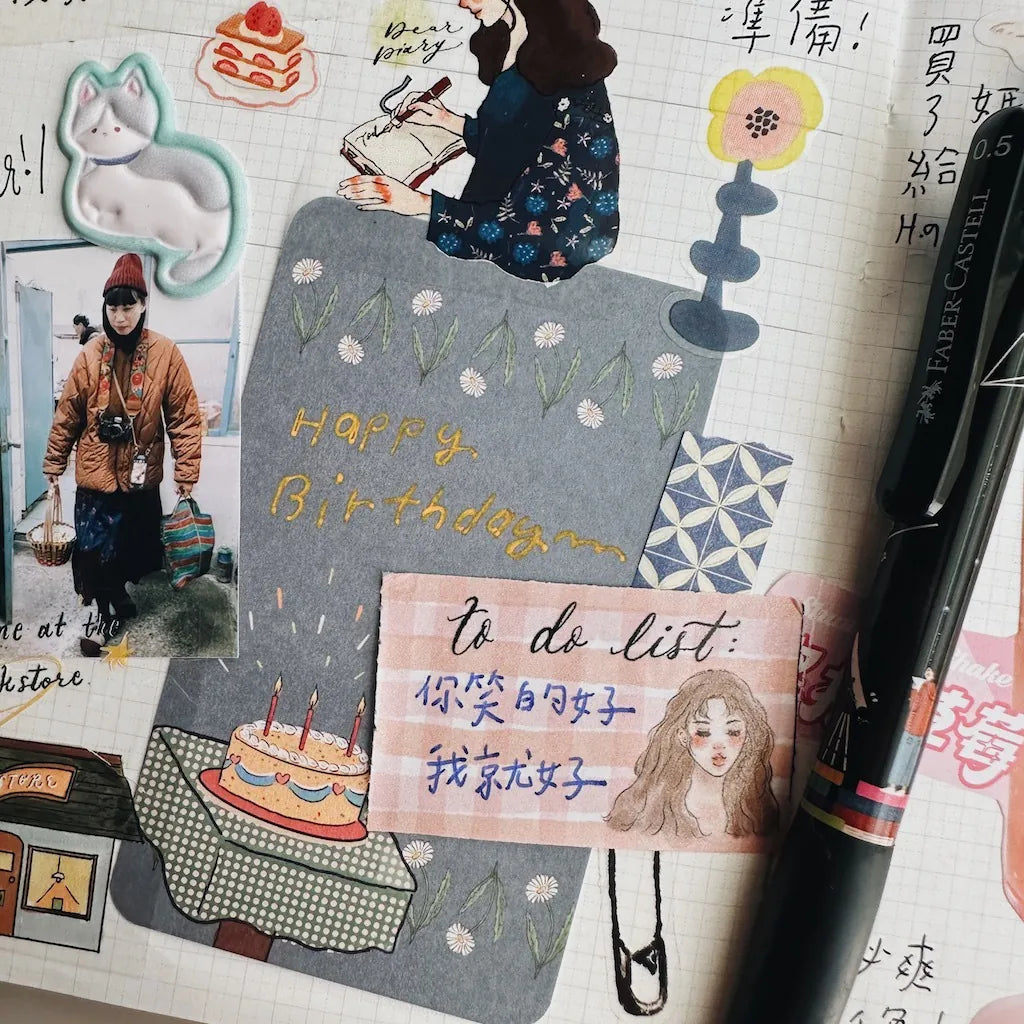 Dear
Diary
準備！
買
了
給
Ha
媽
0.5
FABER-CASTELL
Happy
Birthday
to do list:
你笑的好
我就好
at the
kstore.
STORE
爽